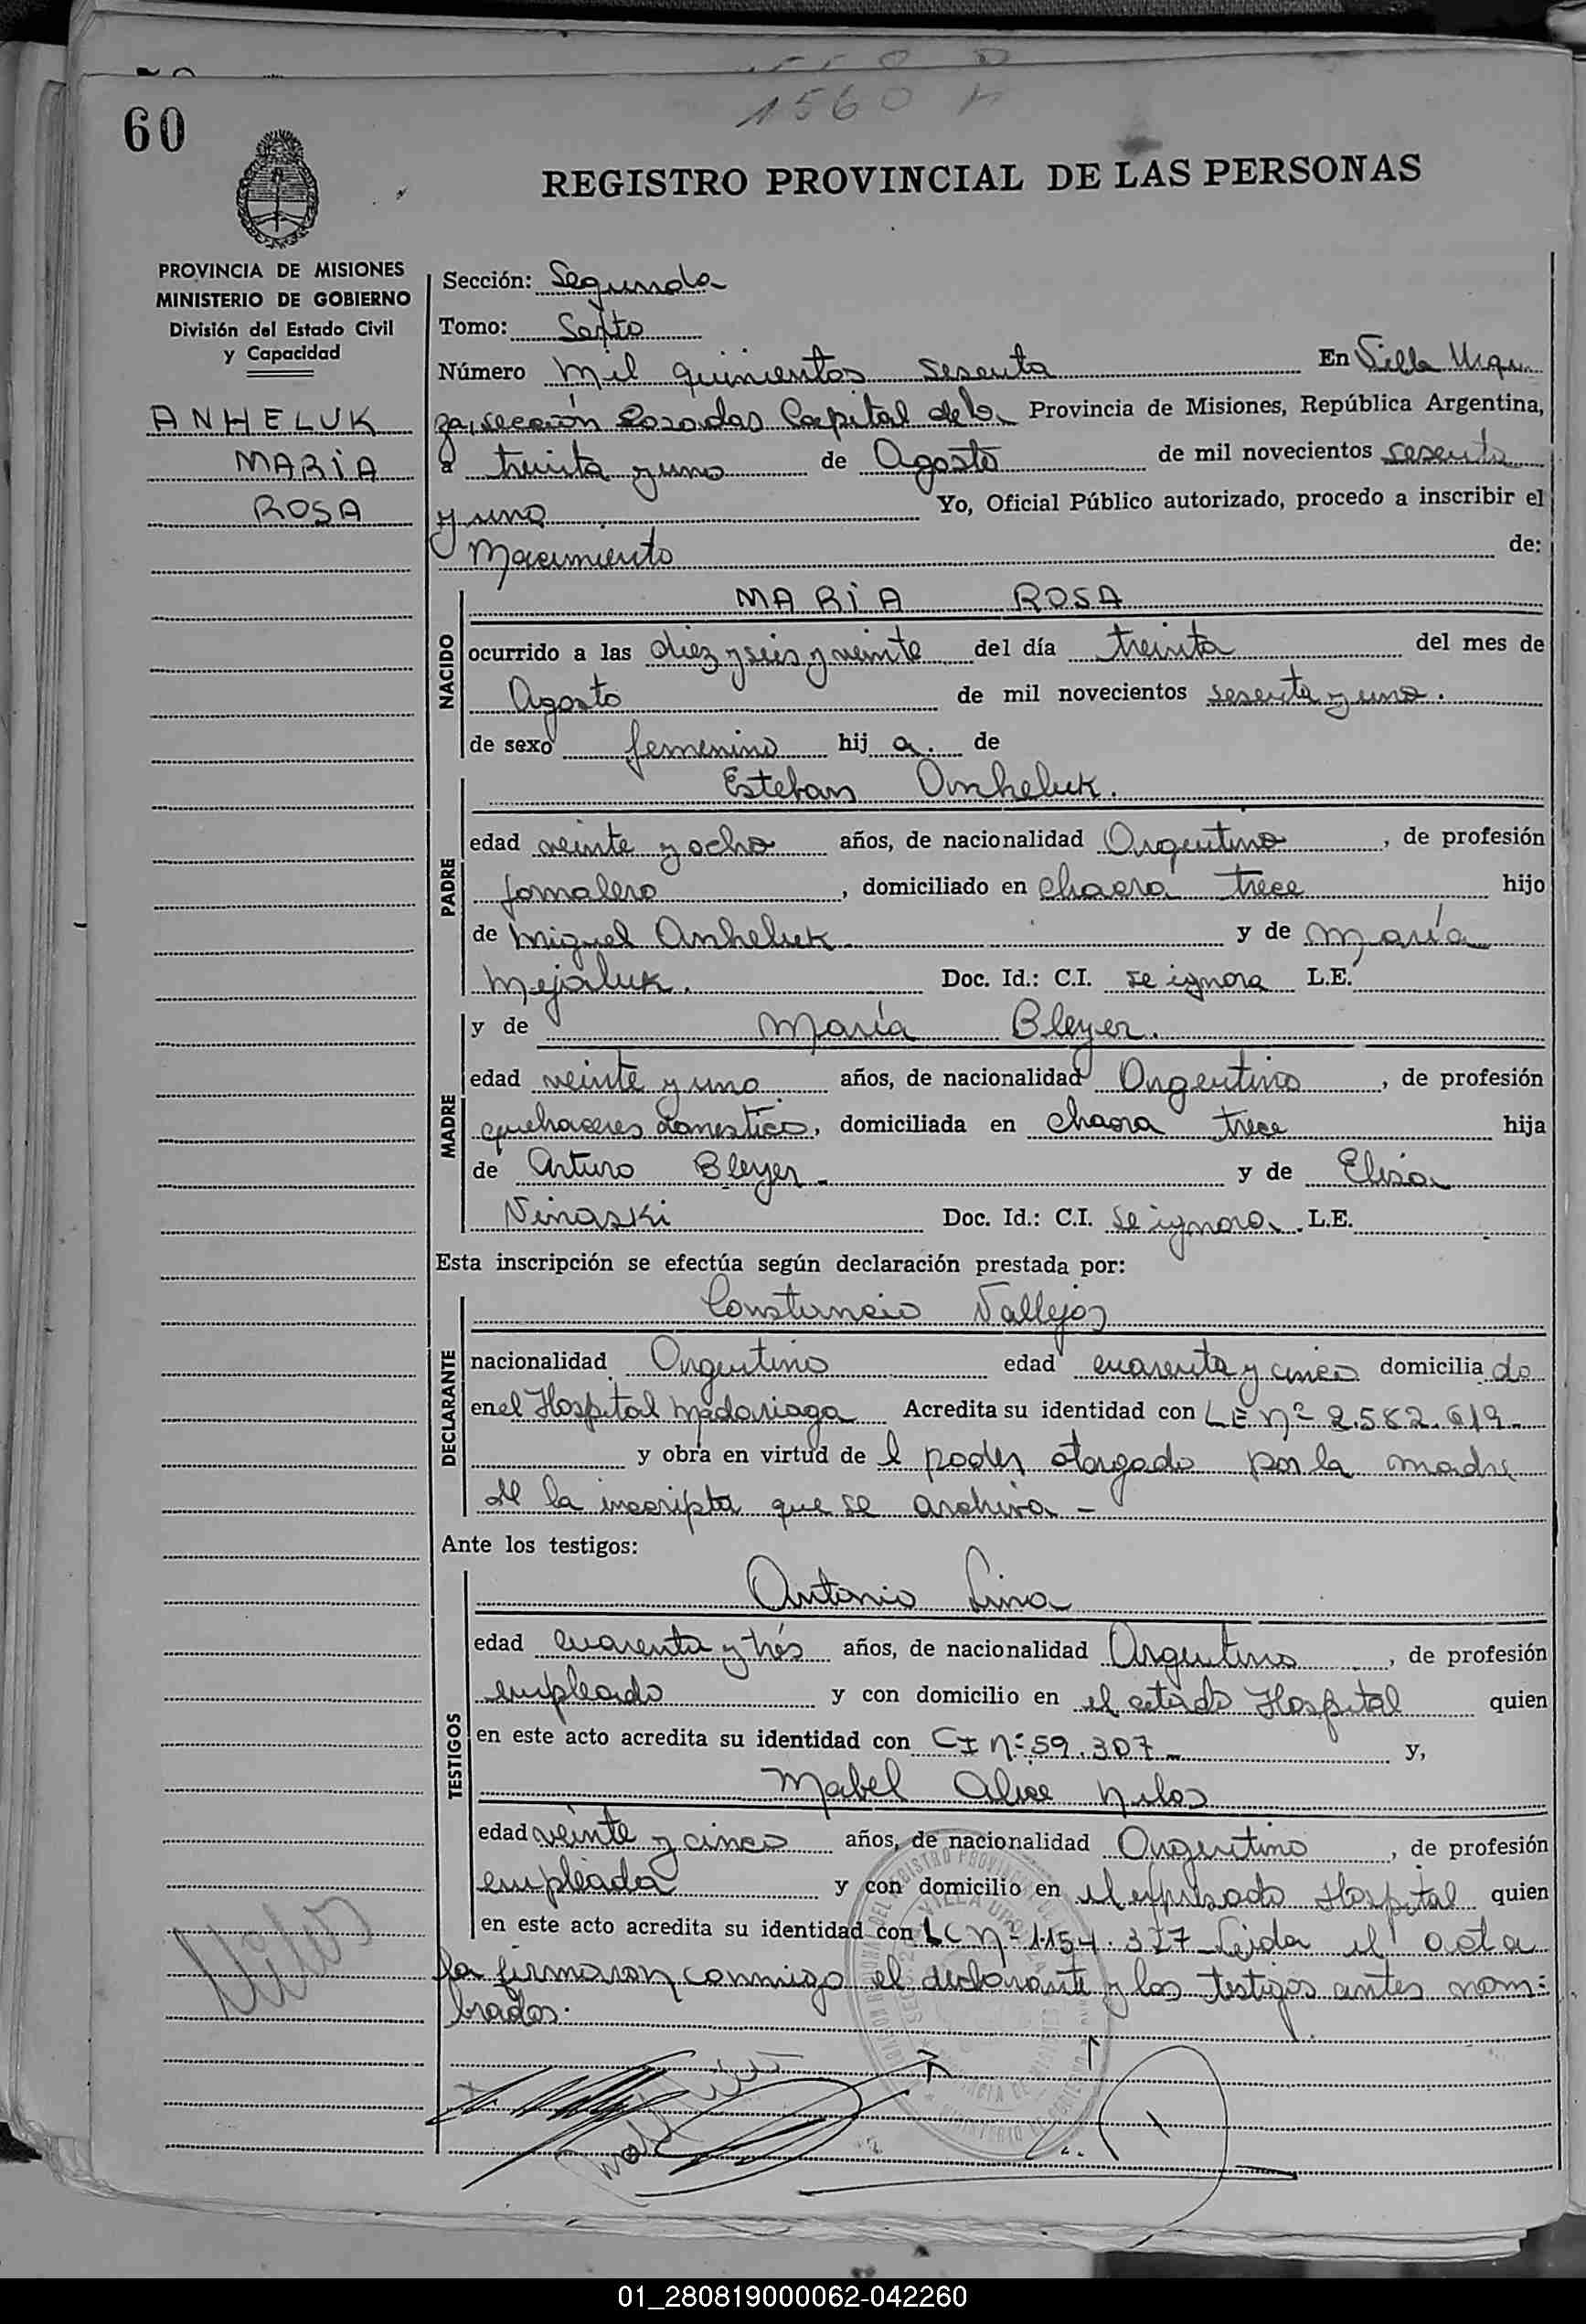 1560
60
REGISTRO PROVINCIAL DE LAS PERSONAS
PROVINCIA DE MISIONES
MINISTERIO DE GOBIERNO
División del Estado Civil
y Capacidad
ANHELUK
MARIA
ROSA
Sección: Segunda
Tomo: Sexto
Número mil quinientos sesenta En Villa Urqui
za, sección Posadas Capital de la Provincia de Misiones, República Argentina,
a treinta y uno de Agosto de mil novecientos sesenta
y uno Yo, Oficial Público autorizado, procedo a inscribir el
Nacimiento de:
NACIDO
MARIA ROSA
ocurrido a las diez y seis y veinte del día treinta del mes de
Agosto de mil novecientos sesenta y uno.
de sexo femenino hij a. de
PADRE
Esteban Anheluk.
edad veinte y ocho años, de nacionalidad Argentino, de profesión
Jornalero, domiciliado en chacra trece hijo
de Miguel Anheluk y de María
Mejaluk. Doc. Id.: C.I. se ignora L.E.
MADRE
y de María Bleyer.
edad veinte y uno años, de nacionalidad Argentina, de profesión
quehaceres domestico, domiciliada en chacra trece hija
de Arturo Bleyer y de Elisa
Vinaski Doc. Id.: C.I. se ignora. L.E.
Esta inscripción se efectúa según declaración prestada por:
DECLARANTE
Constancio Vallejos
nacionalidad Argentino edad cuarenta y cinco domicilia do
en el Hospital Madariaga Acredita su identidad con LE nº 2.582.619
y obra en virtud de l poder otorgado por la madre
de la inscripta que se archiva -
Ante los testigos:
TESTIGOS
Antonio Lina
edad cuarenta y trés años, de nacionalidad Argentino, de profesión
empleado y con domicilio en el citado Hospital quien
en este acto acredita su identidad con CI nº 59.307 - y,
Mabel Alice Nilos
edad veinte y cinco años, de nacionalidad Argentina, de profesión
empleada y con domicilio en el expresado Hospital quien
en este acto acredita su identidad con LC nº 1.154.327 Leida el acta
la firmaron conmigo el declarante y los testigos antes nom:
brados.
01_280819000062-042260